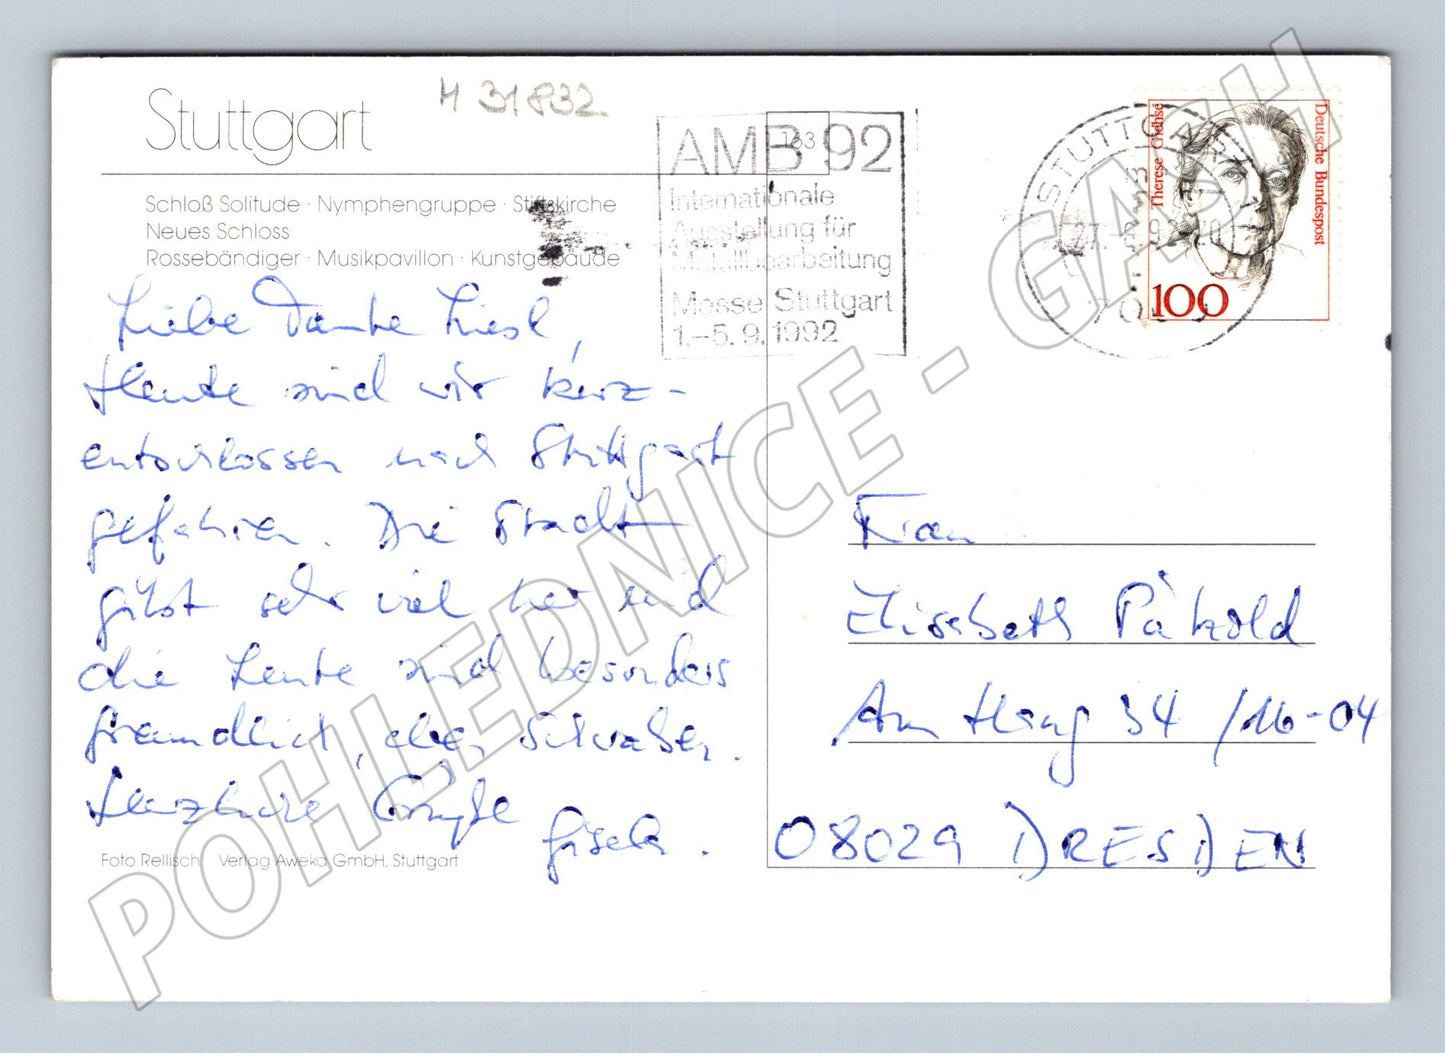 Stuttgart
H 31832
Schloß Solitude · Nymphengruppe · Stiftskirche
Neues Schloss
Rossebändiger · Musikpavillon · Kunstgebäude
Liebe Tante Liesl,
Heute sind wir kurz-
entschlossen nach Stuttgart
gefahren. Die Stadt
gibt sehr viel her und
die Leute sind besonders
freundlich, eben Schwaben.
Herzliche Grüße
Gisela.
Foto Rellisch Verlag Aweka GmbH, Stuttgart
AMB 92
163
Internationale
Ausstellung für
Metallbearbeitung
Messe Stuttgart
1.–5. 9. 1992
STUTTGART
Therese Giehse
Deutsche Bundespost
100
Frau
Elisabeth Pätzold
Am Hang 34 /16-04
08029 DRESDEN
POHLEDNICE - GASH